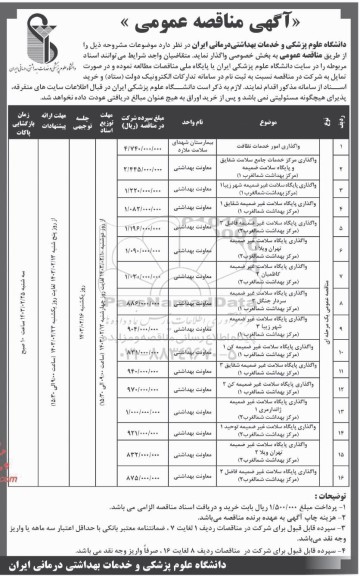 «آگهی مناقصه عمومی»
دانشگاه علوم پزشکی و خدمات بهداشتی درمانی ایران
دانشگاه علوم پزشکی و خدمات بهداشتی‌درمانی ایران در نظر دارد موضوعات مشروحه ذیل را
از طریق مناقصه عمومی به بخش خصوصی واگذار نماید. متقاضیان واجد شرایط می‌توانند اسناد
مربوطه را در سایت دانشگاه علوم پزشکی ایران یا پایگاه ملی مناقصات مطالعه نموده و در صورت
تمایل به شرکت در مناقصه نسبت به ثبت نام در سامانه تدارکات الکترونیک دولت (ستاد) و خرید
اسناد از سامانه مذکور اقدام نمایند. لازم به ذکر است دانشگاه علوم پزشکی ایران در قبال اطلاعات سایت های متفرقه،
پذیرای هیچگونه مسئولیتی نمی باشد و پس از خرید اوراق به هیچ عنوان مبالغ دریافتی عودت داده نخواهد شد.
ردیف نوع موضوع نام واحد مبلغ سپرده شرکت در مناقصه (ریال) توزیع اسناد جلسه توجیهی مهلت ارائه پیشنهادات زمان بازگشایی پاکات
مناقصه عمومی یک مرحله ای
۱ واگذاری امور خدمات نظافت بیمارستان شهدای سلامت ملارد ۴/۷۴۰/۰۰۰/۰۰۰
۲ واگذاری مرکز خدمات جامع سلامت شقایق و پایگاه سلامت ضمیمه (مرکز بهداشت شمالغرب۱) معاونت بهداشتی
۳ واگذاری پایگاه سلامت غیر ضمیمه شهر زیبا۱ (مرکز بهداشت شمالغرب۲) معاونت بهداشتی ۱/۲۲۰/۰۰۰/۰۰۰
۴ واگذاری پایگاه سلامت غیر ضمیمه شقایق ۱ (مرکز بهداشت شمالغرب۲) معاونت بهداشتی ۱/۰۸۲/۰۰۰/۰۰۰
۵ واگذاری پایگاه سلامت غیر ضمیمه فاضل ۳ (مرکز بهداشت شمالغرب۲) معاونت بهداشتی ۱/۱۹۶/۰۰۰/۰۰۰
۶ واگذاری پایگاه سلامت غیر ضمیمه تهران ویلا ۱ (مرکز بهداشت شمالغرب۲) معاونت بهداشتی ۱/۰۹۰/۰۰۰/۰۰۰
۷ واگذاری پایگاه سلامت غیر ضمیمه کاظمیان ۲ (مرکز بهداشت شمالغرب۲) معاونت بهداشتی
۸ واگذاری پایگاه سلامت غیر ضمیمه سردار جنگل ۲ (مرکز بهداشت شمالغرب۲) معاونت بهداشتی ۸۸۶/۰۰۰/۰۰۰
۹ واگذاری پایگاه سلامت غیر ضمیمه شهر زیبا ۳ (مرکز بهداشت شمالغرب۲) معاونت بهداشتی ۹۰۴/۰۰۰/۰۰۰
۱۰ واگذاری پایگاه سلامت غیر ضمیمه کن ۱ (مرکز بهداشت شمالغرب۲) معاونت بهداشتی
۱۱ واگذاری پایگاه سلامت غیر ضمیمه شقایق ۳ (مرکز بهداشت شمالغرب۲) معاونت بهداشتی ۹۴۰/۰۰۰/۰۰۰
۱۲ واگذاری پایگاه سلامت غیر ضمیمه کن ۲ (مرکز بهداشت شمالغرب۲) معاونت بهداشتی ۹۷۰/۰۰۰/۰۰۰
۱۳ واگذاری پایگاه سلامت غیر ضمیمه ژاندارمری ۱ (مرکز بهداشت شمالغرب۲) معاونت بهداشتی ۱/۰۰۰/۰۰۰/۰۰۰
۱۴ واگذاری پایگاه سلامت غیر ضمیمه توحید ۱ (مرکز بهداشت شمالغرب۲) معاونت بهداشتی ۹۲۱/۰۰۰/۰۰۰
۱۵ واگذاری پایگاه سلامت غیر ضمیمه تهران ویلا ۲ (مرکز بهداشت شمالغرب۲) معاونت بهداشتی ۸۳۲/۰۰۰/۰۰۰
۱۶ واگذاری پایگاه سلامت غیر ضمیمه فاضل ۲ (مرکز بهداشت شمالغرب۲) معاونت بهداشتی ۸۷۵/۰۰۰/۰۰۰
توضیحات :
۱- پرداخت مبلغ ۱/۵۰۰/۰۰۰ ریال بابت خرید و دریافت اسناد مناقصه الزامی می باشد.
۲- هزینه چاپ آگهی به عهده برنده مناقصه می‌باشد.
۳- سپرده قابل قبول برای شرکت در مناقصات ردیف ۱ لغایت ۷ ، ضمانتنامه معتبر بانکی با حداقل اعتبار سه ماهه یا واریز
وجه نقد می‌باشد.
۴- سپرده قابل قبول برای شرکت در مناقصات ردیف ۸ لغایت ۱۶ ، صرفاً واریز وجه نقد می باشد.
دانشگاه علوم پزشکی و خدمات بهداشتی درمانی ایران